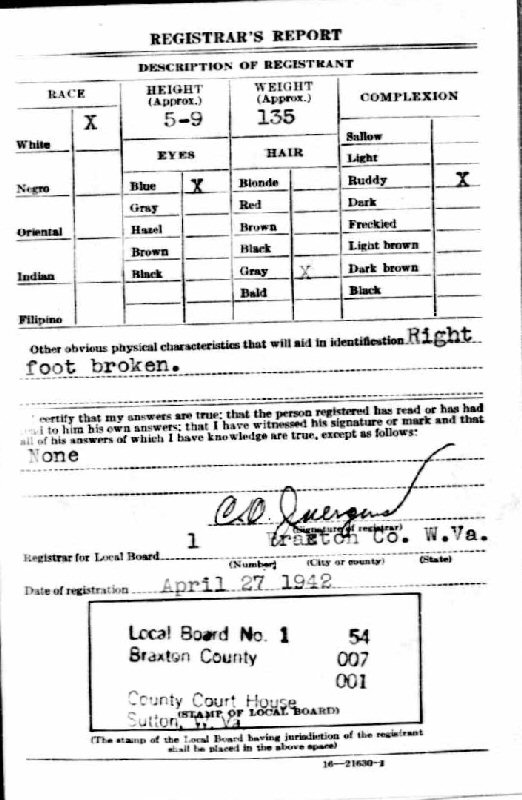 REGISTRAR'S REPORT
DESCRIPTION OF REGISTRANT
RACE
HEIGHT
(Approx.)
WEIGHT
(Approx.)
COMPLEXION
X
5-9
135
White
Sallow
EYES
HAIR
Light
Negro
Blue X
Blonde
Ruddy X
Gray
Red
Dark
Oriental
Hazel
Brown
Freckled
Brown
Black
Light brown
Indian
Black
Gray X
Dark brown
Bald
Black
Filipino
Other obvious physical characteristics that will aid in identification Right
foot broken.
certify that my answers are true; that the person registered has read or has had
to him his own answers; that I have witnessed his signature or mark and that
all of his answers of which I have knowledge are true, except as follows:
None
C.O. Juergens
(Signature of registrar)
Registrar for Local Board 1 Braxton Co. W.Va.
(Number) (City or county) (State)
Date of registration April 27 1942
Local Board No. 1 54
Braxton County 007
001
County Court House
(STAMP OF LOCAL BOARD)
Sutton, W. Va
(The stamp of the Local Board having jurisdiction of the registrant
shall be placed in the above space)
16—21630-1